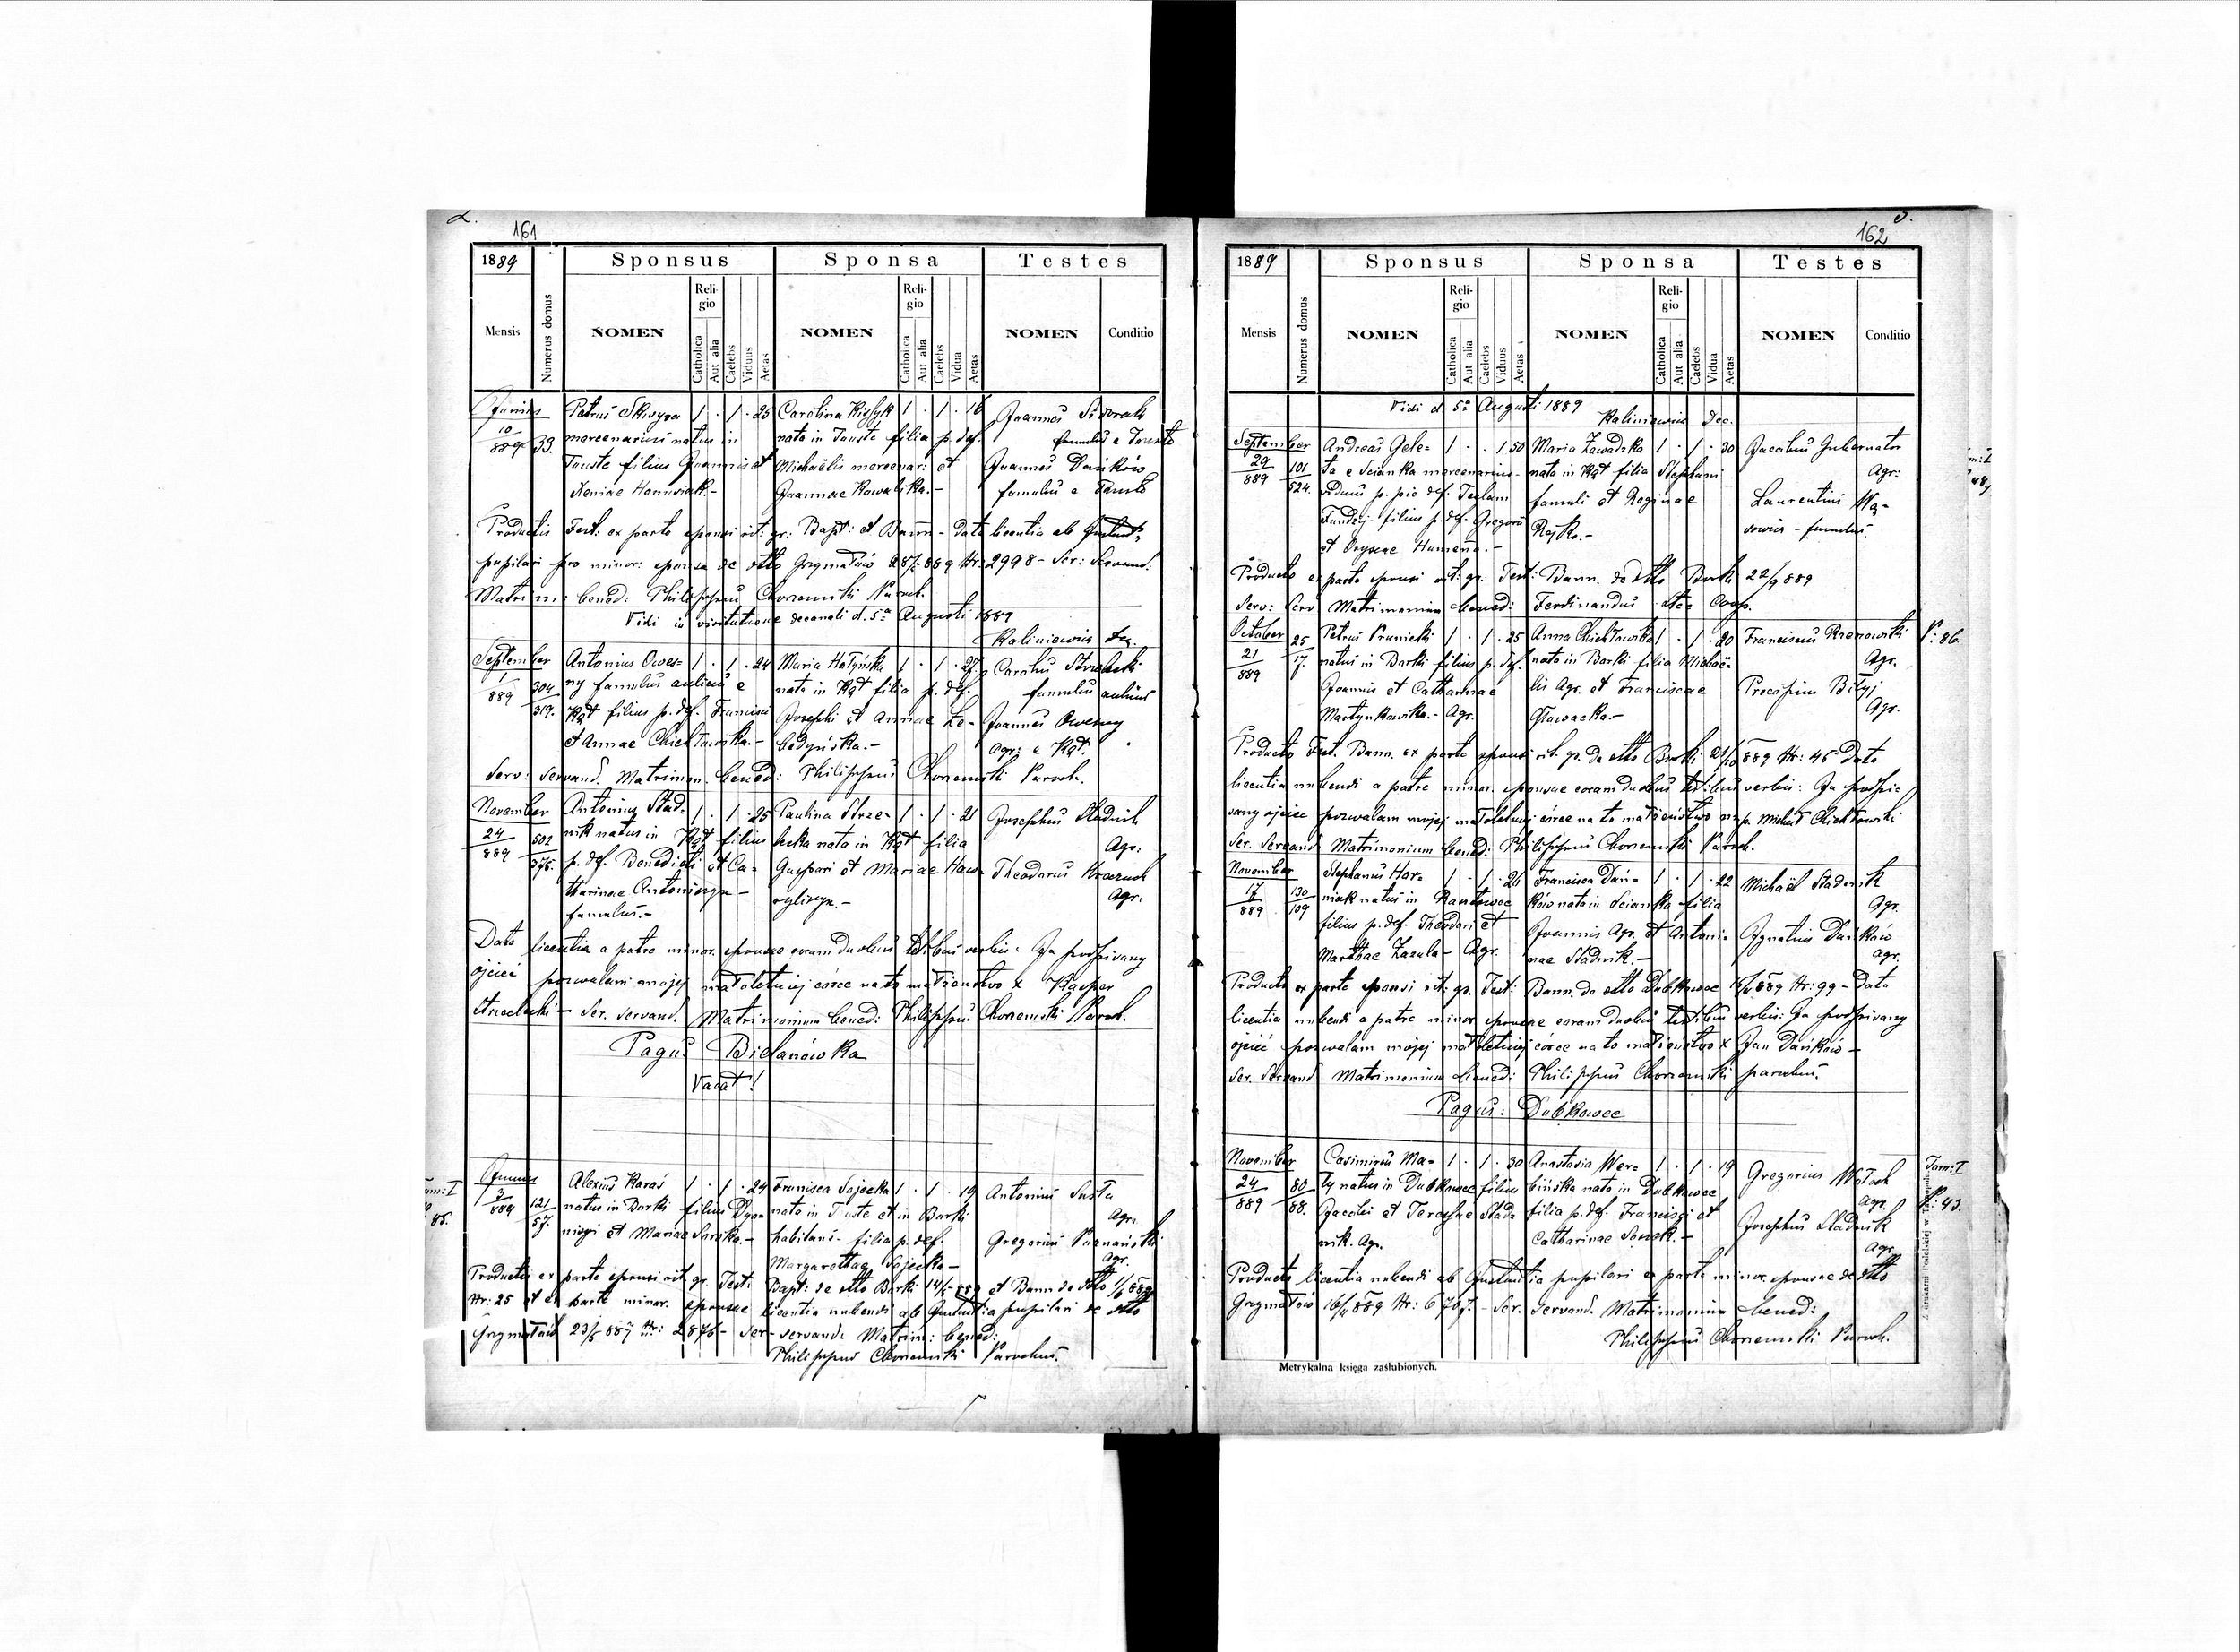 2.
161
1889
Sponsus
Sponsa
Testes
Mensis
Numerus domus
NOMEN
Religio
Catholica
Aut alia
Caelebs
Viduus
Aetas
NOMEN
Religio
Catholica
Aut alia
Caelebs
Vidua
Aetas
NOMEN
Conditio
Junius 10/889 33.
Petrus Skwyra 1 . 1 . 25
mercenarius natus in
Touste filius Joannis et
Xeniae Hanusiak.-
Carolina Kisłyk 1 . 1 . 16
nata in Touste filia p. def.
Michaëlis mercenar: et
Joannae Kowalska.-
Joannes
famulus e Touste
Joannes Dańków
famulus e Touste
Productis Test: ex parte sponsi rit: gr: Bapt: et Bann - data licentia ab
pupilari pro minor: sponsa de dtto Grzymałów 28/5 889 Nr: 2998 - Ser: Servand:
Matrim: bened: Philippus Chorzemski Paroch.
Vidi in visitatione decanali d. 5a Augusti 1889
Kaliniewicz Dec.
September 1/889 304/319.
Antonius Owes= 1 . 1 . 24
ny famulus aulicus e
Kąt filius p. def. Francisci
et Annae Chichłowska.-
Maria Hołyńska 1 . 1 . 27.
nata in Kąt filia p. def.
Josephi et Annae Lo-
badyńska.-
Carolus Strzelecki
famulus aulicus
Joannes Owesny
agr: e Kąt.
Serv: servand. Matrimon. bened: Philippus Chorzemski Paroch.
November 24/889 502/376.
Antonius Stad= 1 . 1 . 25
nik natus in Kąt filius
p. def. Benedicti et Ca-
tharinae Antoniszyn -
famulus.-
Paulina Strze- 1 . 1 . 21
lecka nata in Kąt filia
Gaspari et Mariae Haw-
ryliszyn.-
Josephus Stadnik
Agr:
Theodorus
agr.
Data licentia a patre minor. sponsae coram duobus testibus verbis: Ja podpisany
ojciec pozwalam mojej małoletniej córce na to małżeństwo x Kasper
Strzelecki - Ser. servand. Matrimonium bened: Philippus Chorzemski Paroch.
Pagus Bielanówka
Vacat!
Tom: I
85.
Junius 3/889 121/57.
Alexius Karaś 1 . 1 . 24
natus in Borki filius Dyo-
nizyi et Mariae .-
Francisca Sojecka 1 . 1 . 19
nata in Touste et in Borki
habitans - filia p. def.
Margarethae Sojecka -
Antonius
Agr.
Gregorius Poznański
Agr.
Productis ex parte sponsi rit. gr. Test: Bapt: de dtto Borki 14/5 889 et Bann de dtto 1/6 889
Nr: 25 et ex parte minor. sponsae licentia nubendi ab Instantia pupilari de dtto
Grzymałów 23/5 887 Nr: 2876 - Ser- servand. Matrim: bened:
Philippus Chorzemski Parochus.
3.
162
1889
Sponsus
Sponsa
Testes
Mensis
Numerus domus
NOMEN
Religio
Catholica
Aut alia
Caelebs
Viduus
Aetas
NOMEN
Religio
Catholica
Aut alia
Caelebs
Vidua
Aetas
NOMEN
Conditio
Vidi d. 5a Augusti 1889
Kaliniewicz Dec.
September 29/889 101/524.
Andreas Gele= 1 . . 1 50
ta e Scianka mercenarius-
viduus p. pie def. Teclam
Fundzij. filius p. def. Gregorii
et Oryszae Humenna.-
Maria Zawadzka 1 . 1 . 30
nata in Kąt filia Stephani
famuli et Reginae
Rejko.-
Jacobus Gubernator
Agr:
Laurentius Wą-
sowicz - famulus.
Producto ex parte sponsi rit: gr: Test: Bann. de dtto Borki 22/9 889
Serv: Serv Matrimonium bened: Ferdinandus Coop.
October 21/889 25/17.
Petrus Prunicki 1 . 1 . 25
natus in Borki filius p. def.
Joannis et Catharinae
Martynkowska.- Agr.
Anna Chichłowska 1 . 1 . 20
nata in Borki filia Michaë-
lis Agr. et Franciscae
Głowacka.-
Franciscus
Agr.
Procopius Biłyj
Agr.
P: 86.
Producto Test. Bann. ex parte sponsi rit. gr. de dtto Borki 21/10 889 Nr: 45 Data
licentia nubendi a patre minor. sponsae coram duobus testibus verbis: Ja podpi-
sany ojciec pozwalam mojej małoletniej córce na to małżeństwo mp. Michał Chichłowski
Ser. Servand Matrimonium bened: Philippus Chorzemski Paroch.
November 17/889 130/109
Stephanus Hor= 1 . 1 . 26
niak natus in
filius p. def. Theodori et
Marthae Zazula - Agr.
Francisca Dań= 1 . 1 . 22
ków nata in Scianka filia
Joannis Agr. et Antoni-
nae Stadnik.-
Michaël Stadnik
Agr.
Ignatius Dańków
agr.
Producto ex parte sponsi rit: gr. Test: Bann. de dtto Dubkowce 889 Nr: 99 - Data
licentia nubendi a patre minor sponsae coram duobus testibus verbis: Ja podpisany
ojciec pozwalam mojej małoletniej córce na to małżeństwo x Jan Dańków -
Ser. Servand Matrimonium bened: Philippus Chorzemski parochus.
Pagus: Dubkowce
November 24/889 80/88.
Casimirus Ma= 1 . 1 . 30
ty natus in Dubkowce filius
Jacobi et Teressae Stad=
nik. Agr.
Anastasia Wer= 1 . 1 . 19
bińska nata in Dubkowce
filia p. def. Francisci et
Catharinae Senek.-
Gregorius Wołoch
agr.
Josephus Stadnik
Agr.
Tom: I
P: 43.
Producto licentia nubendi ab Instantia pupilari ex parte minor. sponsae de dtto
Grzymałów 16/11 889 Nr: 6707. - Ser. servand. Matrimonium bened:
Philippus Chorzemski Paroch.
Metrykalna księga zaślubionych.